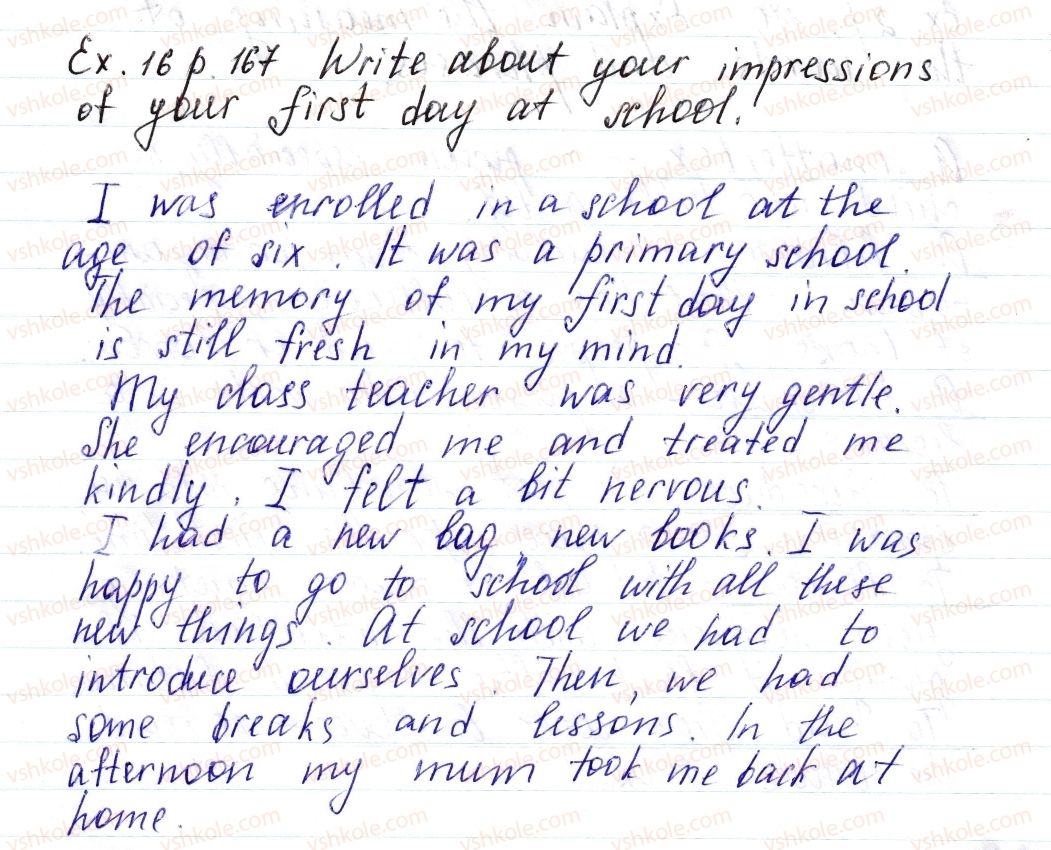 Ex. 16 p. 167 Write about your impressions
of your first day at school.
I was enrolled in a school at the
age of six. It was a primary school.
The memory of my first day in school
is still fresh in my mind.
My class teacher was very gentle.
She encouraged me and treated me
kindly. I felt a bit nervous.
I had a new bag, new books. I was
happy to go to school with all these
new things. At school we had to
introduce ourselves. Then, we had
some breaks and lessons. In the
afternoon my mum took me back at
home.